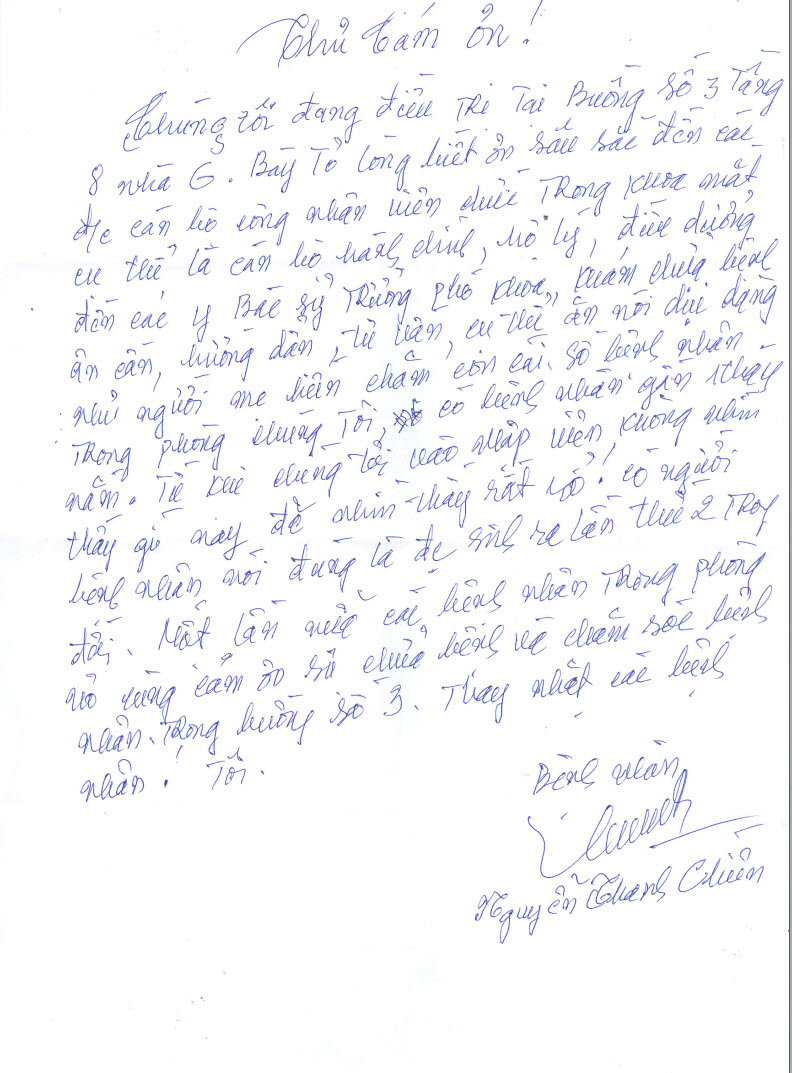 Thư Cám ơn!
Chúng tôi đang điều Trị Tại Buồng số 3 Tầng
8 nhà G. Bày Tỏ lòng biết ơn sâu sắc đến các
đ/c cán bộ công nhân viên chức Trong khoa mắt
cụ thể là cán bộ hành chính, hộ lý, điều dưỡng
đến các y Bác sỹ Trưởng phó khoa, khám chữa bệnh
ân cần, hướng dẫn, tư vấn, cụ thể ăn nói dịu dàng
như người mẹ hiền chăm con cái. số bệnh nhân
Trong phòng chúng Tôi, có bệnh nhân gần 1 tháng
nằm. Từ khi chúng tôi vào nhập viện không nhìn
thấy gì nay đã nhìn thấy rất rõ! có người
bệnh nhân nói đúng là đc sinh ra lần thứ 2 Trong
đời. Một lần nữa các bệnh nhân Trong phòng
vô cùng cám ơn sự chữa bệnh và chăm sóc bệnh
nhân. Trong buồng số 3. Thay mặt các bệnh
nhân! Tôi.
Bệnh nhân
Nguyễn Thanh Chiến